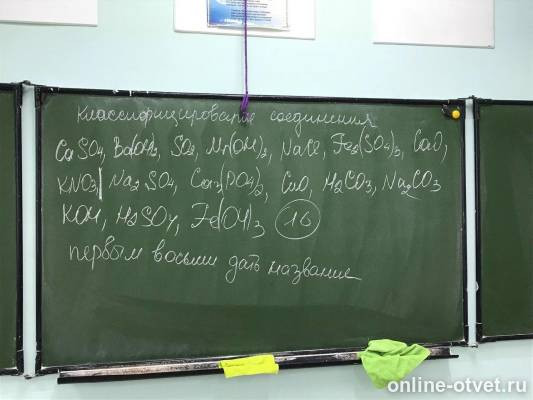 Классифицирование соединения
CaSO4, Ba(OH)2, SO2, Mn(OH)2, NaCl, Fe2(SO4)3, CaO,
KNO3, Na2SO4, Ca3(PO4)2, CuO, H2CO3, Na2CO3
KOH, H2SO4, Fe(OH)3 16
первым восьми дать название
online-otvet.ru